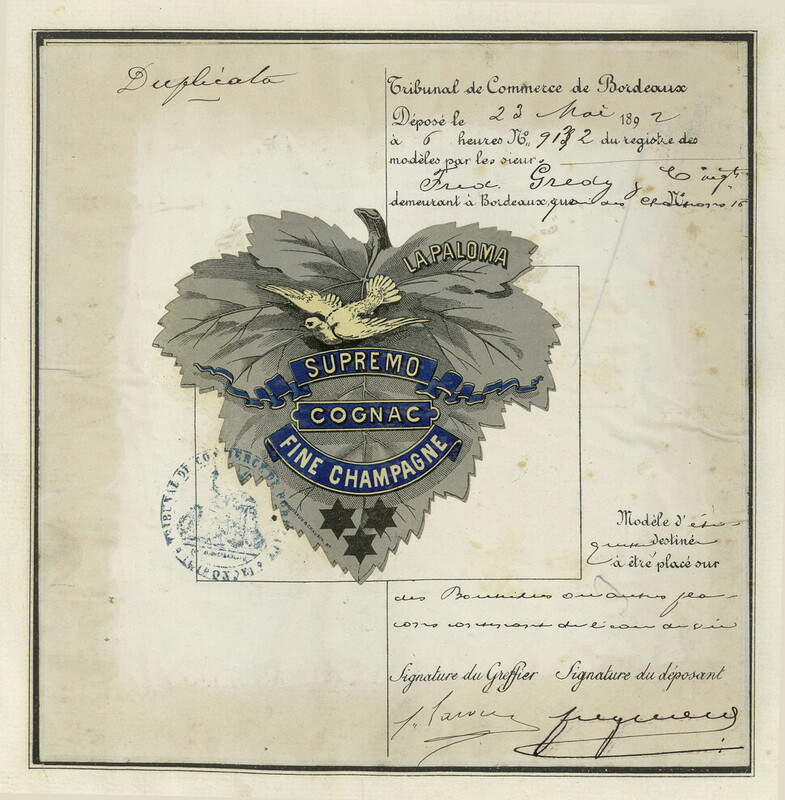 Duplicata
Tribunal de Commerce de Bordeaux
Déposé le 23 Mai 1892
à 6 heures Nº 9132 du registre des
modèles par les sieurs
Fred. Gredy &
demeurant à Bordeaux, quai des Chartrons Nº 16
LA PALOMA
SUPREMO
COGNAC
FINE CHAMPAGNE
TRIBUNAL DE COMMERCE DE BORDEAUX
Modèle d'
destiné
à être placé sur
des Bouteilles ou autres fla-
cons contenant de l'eau de vie
Signature du Greffier Signature du déposant